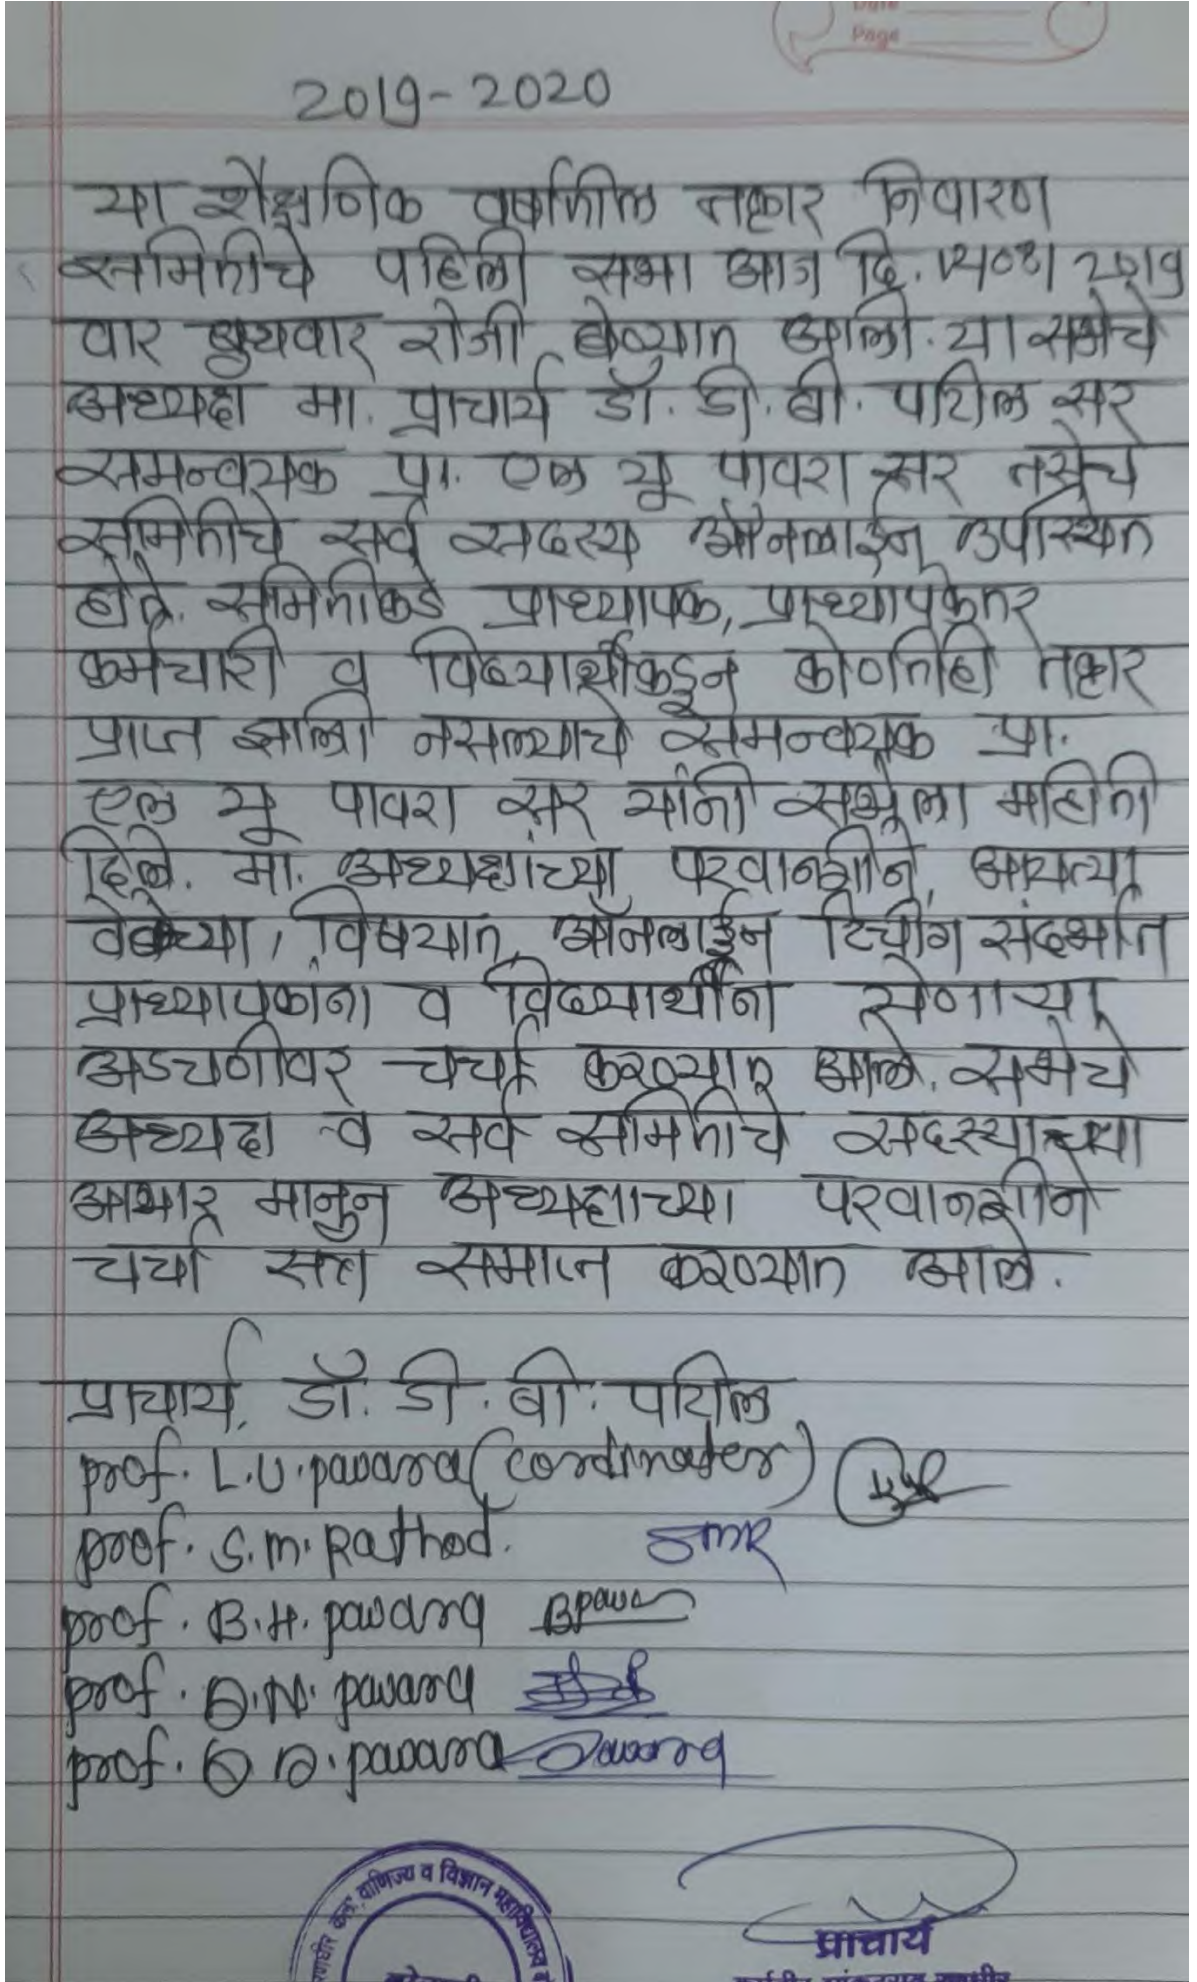 Date
Page
2019-2020
या शैक्षणिक वर्षातील तक्रार निवारण
समितीचे पहिली सभा आज दि.
वार बुधवार रोजी घेण्यात आली. या सभेचे
अध्यक्ष मा. प्राचार्य डॉ. डी. बी. पाटील सर
समन्वयक प्रा. एल यू पावरा सर तसेच
समितीचे सर्व सदस्य ऑनलाईन उपस्थित
होते. समितीकडे प्राध्यापक, प्राध्यापकेतर
कर्मचारी व विद्यार्थीकडून कोणतिही तक्रार
प्राप्त झाली नसल्याचे समन्वयक प्रा.
एल यू पावरा सर यांनी सभेला माहिती
दिले. मा. अध्यक्षांच्या परवानगीने, आयत्या
वेळेच्या, विषयात, ऑनलाईन टिचींग संदर्भात
प्राध्यापकांना व विद्यार्थीना येणाऱ्या
अडचणीवर चर्चा करण्यात आले. सभेचे
अध्यक्ष व सर्व समितीचे सदस्याच्या
आभार मानुन अध्यक्षाच्या परवानगीने
चर्चा सत्र समाप्त करण्यात आले.
प्राचार्य, डॉ. डी. बी. पाटील
prof. L.U. pawara (cordinater)
prof. S.M. Rathod. SMR
prof. B.H. pawara Bpawa
prof. D.N. pawara
prof. pawara
कला, वाणिज्य व विज्ञान महाविद्यालय
प्राचार्य